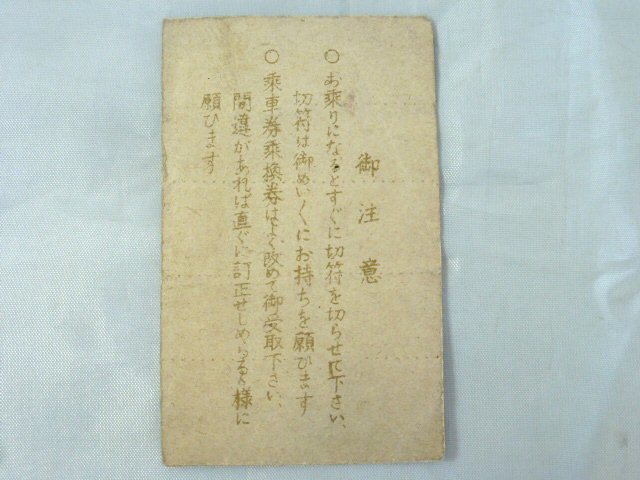 御注意
○お乗りになるとすぐに切符を切らせて下さい、
切符は御めい〱にお持ちを願ひます
○乗車券乗換券はよく改めて御受取下さい、
間違があれば直ぐに訂正せしめらるゝ様に
願ひます